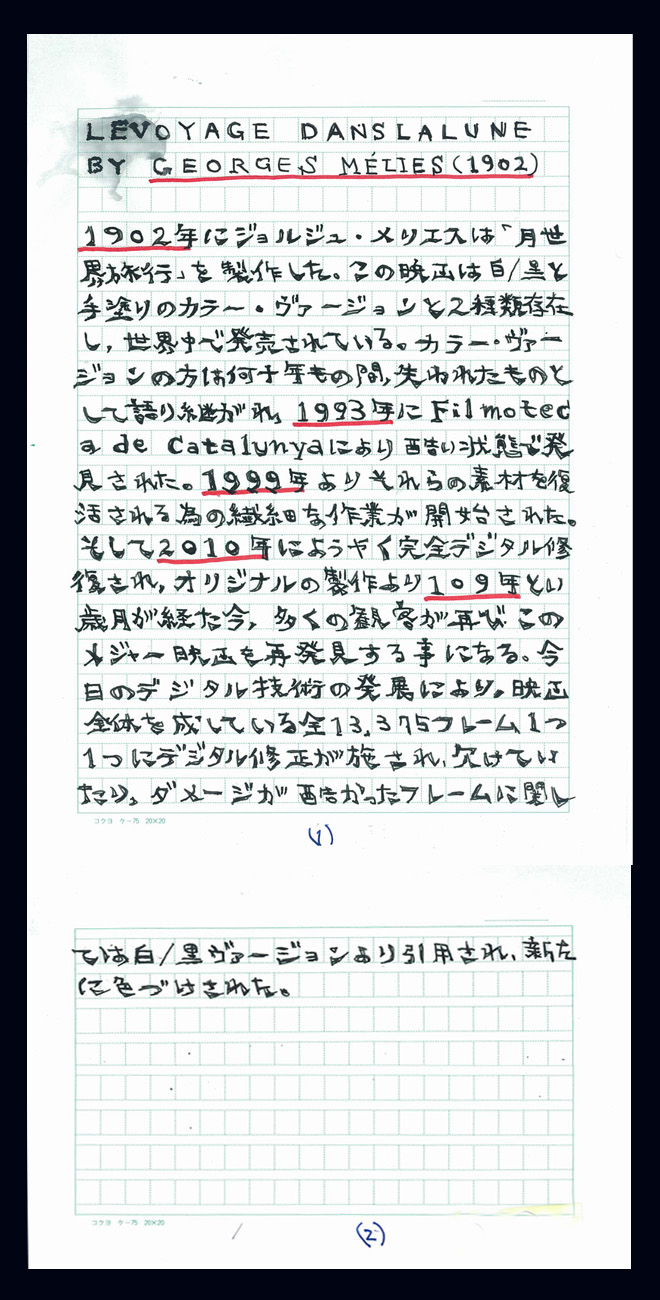 LEVOYAGE DANSLALUNE
BY GEORGES MÉLIES(1902)
1902年にジョルジュ・メリエスは「月世
界旅行」を製作した。この映画は白/黒と
手塗りのカラー・ヴァージョンと2種類存在
し、世界中で発売されている。カラー・ヴァー
ジョンの方は何十年もの間,失われたものと
して語り継がれ,1993年にFilmotec
a de Catalunyaにより酷い状態で発
見された。1999年よりそれらの素材を復
活される為の繊細な作業が開始された。
そして2010年にようやく完全デジタル修
復され,オリジナルの製作より109年とい
歳月が経た今,多くの観客が再びこの
メジャー映画を再発見する事になる。今
日のデジタル技術の発展により,映画
全体を成している全13.375フレーム1つ
1つにデジタル修正が施され、欠けてい
たり,ダメージが酷かったフレームに関し
コクヨ ケ-75 20×20
(1)
ては白/黒ヴァージョンより引用され、新た
に色づけされた。
コクヨ ケ-75 20×20
(2)